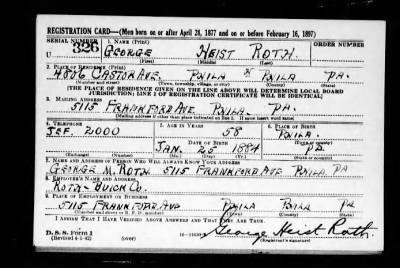 REGISTRATION CARD—(Men born on or after April 28, 1877 and on or before February 16, 1897)
SERIAL NUMBER 1. NAME (Print) ORDER NUMBER
U 326 GEORGE HEIST ROTH
2. PLACE OF RESIDENCE (Print)
4806 CASTOR AVE. PHILA PHILA PA.
(Number and street) (Town, township, village, or city) (County) (State)
[THE PLACE OF RESIDENCE GIVEN ON THE LINE ABOVE WILL DETERMINE LOCAL BOARD
JURISDICTION; LINE 2 OF REGISTRATION CERTIFICATE WILL BE IDENTICAL]
3. MAILING ADDRESS
5115 FRANKFORD AVE PHILA. PA.
[Mailing address if other than place indicated on line 2. If same insert word same]
4. TELEPHONE 5. AGE IN YEARS 6. PLACE OF BIRTH
JEF. 2000 58 PHILA.
DATE OF BIRTH (Town or county)
JAN. 25 1884 PA.
(Exchange) (Number) (Mo.) (Day) (Yr.) (State or country)
7. NAME AND ADDRESS OF PERSON WHO WILL ALWAYS KNOW YOUR ADDRESS
GEORGE M. ROTH 5115 FRANKFORD AVE PHILA. PA
8. EMPLOYER'S NAME AND ADDRESS
ROTH BUICK CO.
9. PLACE OF EMPLOYMENT OR BUSINESS
5115 FRANKFORD AVE PHILA PHILA PA
(Number and street or R. F. D. number) (Town) (County) (State)
I AFFIRM THAT I HAVE VERIFIED ABOVE ANSWERS AND THAT THEY ARE TRUE.
D. S. S. Form 1
(Revised 4-1-42) (over) George Heist Roth.
(Registrant's signature)